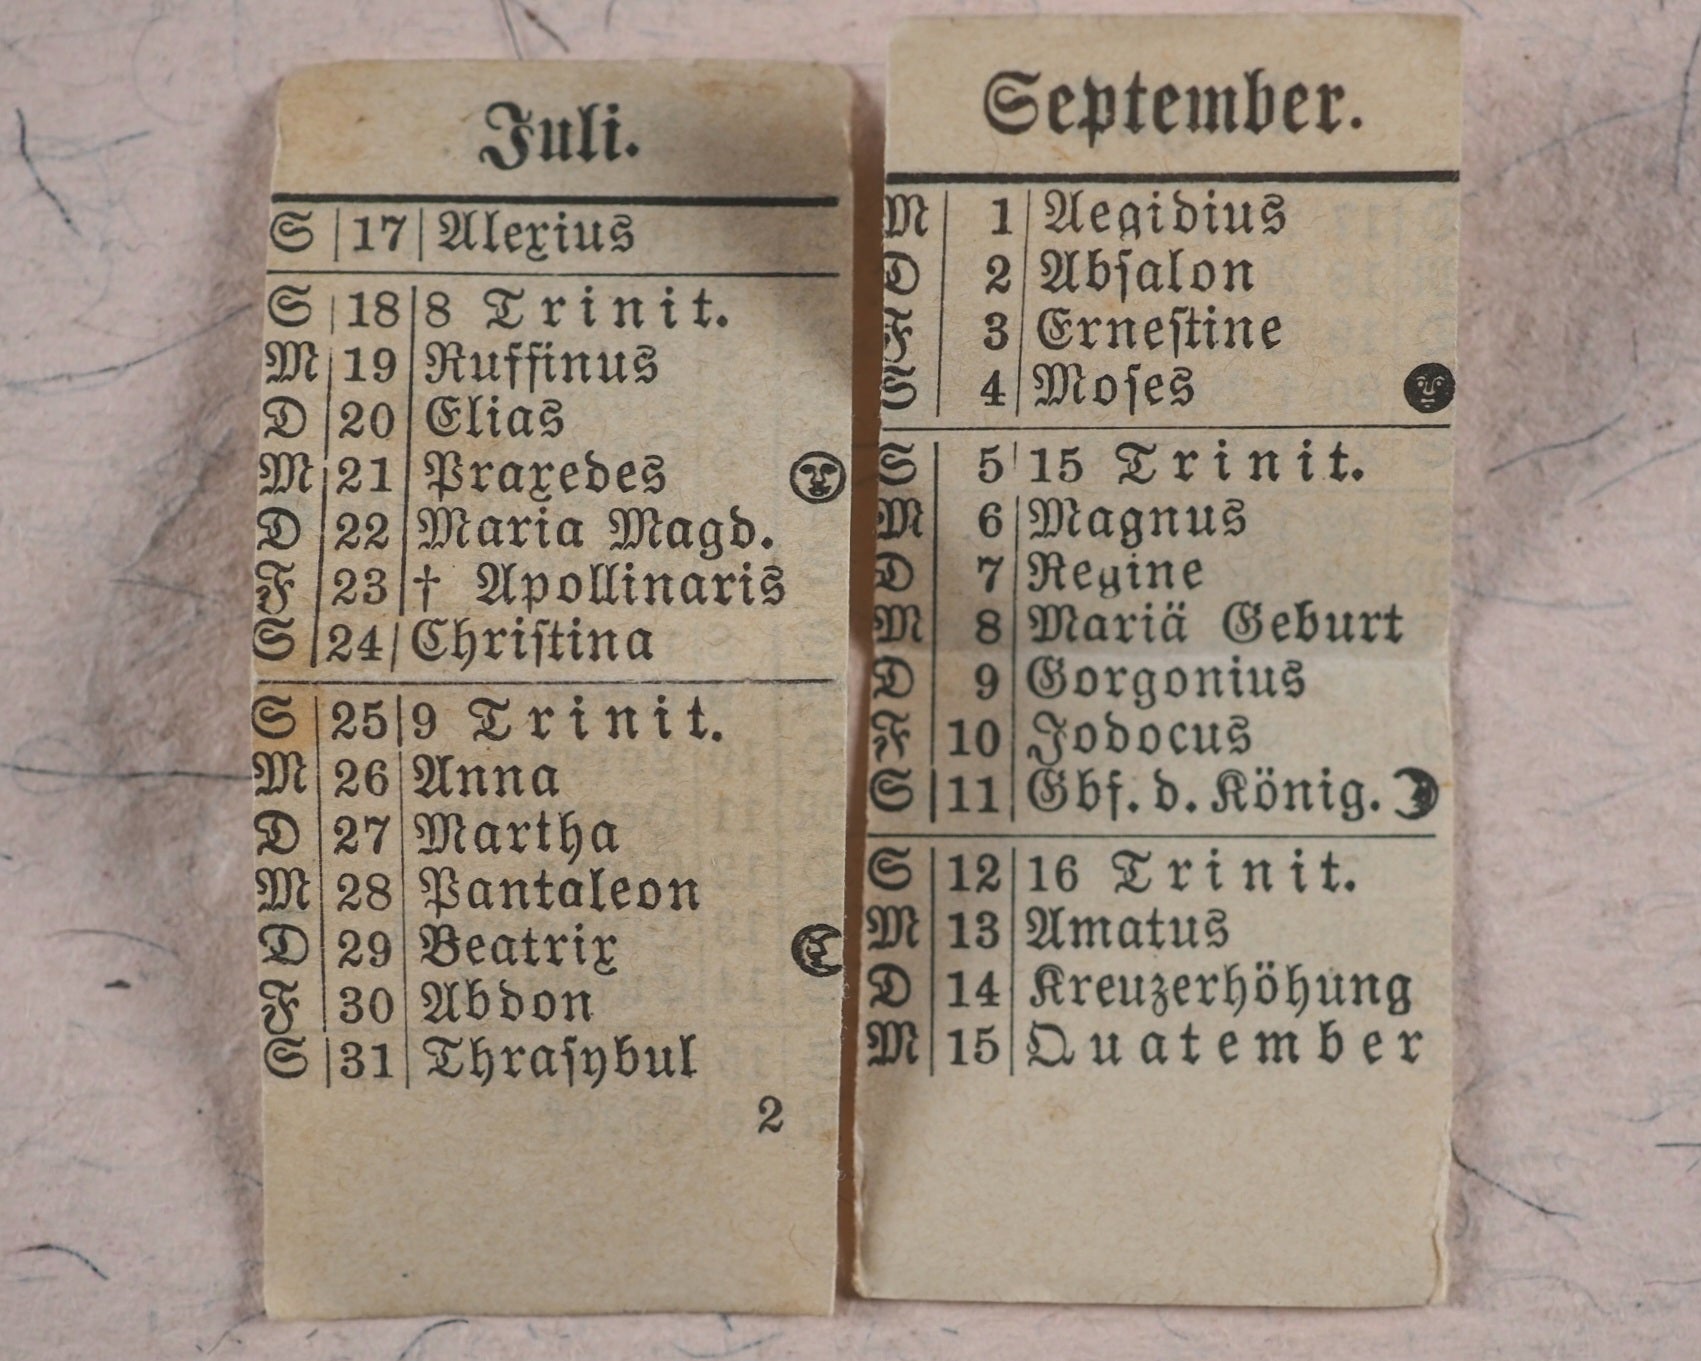 Juli.
S 17 Alexius
S 18 8 Trinit.
M 19 Ruffinus
D 20 Elias
M 21 Praxedes
D 22 Maria Magd.
F 23 † Apollinaris
S 24 Chriſtina
S 25 9 Trinit.
M 26 Anna
D 27 Martha
M 28 Pantaleon
D 29 Beatrix
F 30 Abdon
S 31 Thraſybul
2
September.
M 1 Aegidius
D 2 Abſalon
F 3 Erneſtine
S 4 Moſes
S 5 15 Trinit.
M 6 Magnus
D 7 Regine
M 8 Mariä Geburt
D 9 Gorgonius
F 10 Jodocus
S 11 Gbf. d. König.
S 12 16 Trinit.
M 13 Amatus
D 14 Kreuzerhöhung
M 15 Quatember